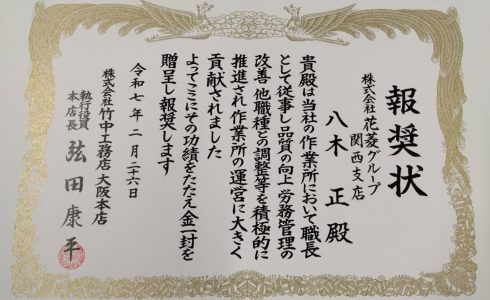 報奨状
株式会社 花菱グループ
関西支店
八木 正 殿
貴殿は当社の作業所において職長
として従事し品質の向上 労務管理の
改善 他職種との調整等を積極的に
推進され作業所の運営に大きく
貢献されました
よってここにその功績をたたえ金一封を
贈呈し報奨します
令和七年二月二十六日
株式会社 竹中工務店 大阪本店
執行役員
本店長
弦田康平